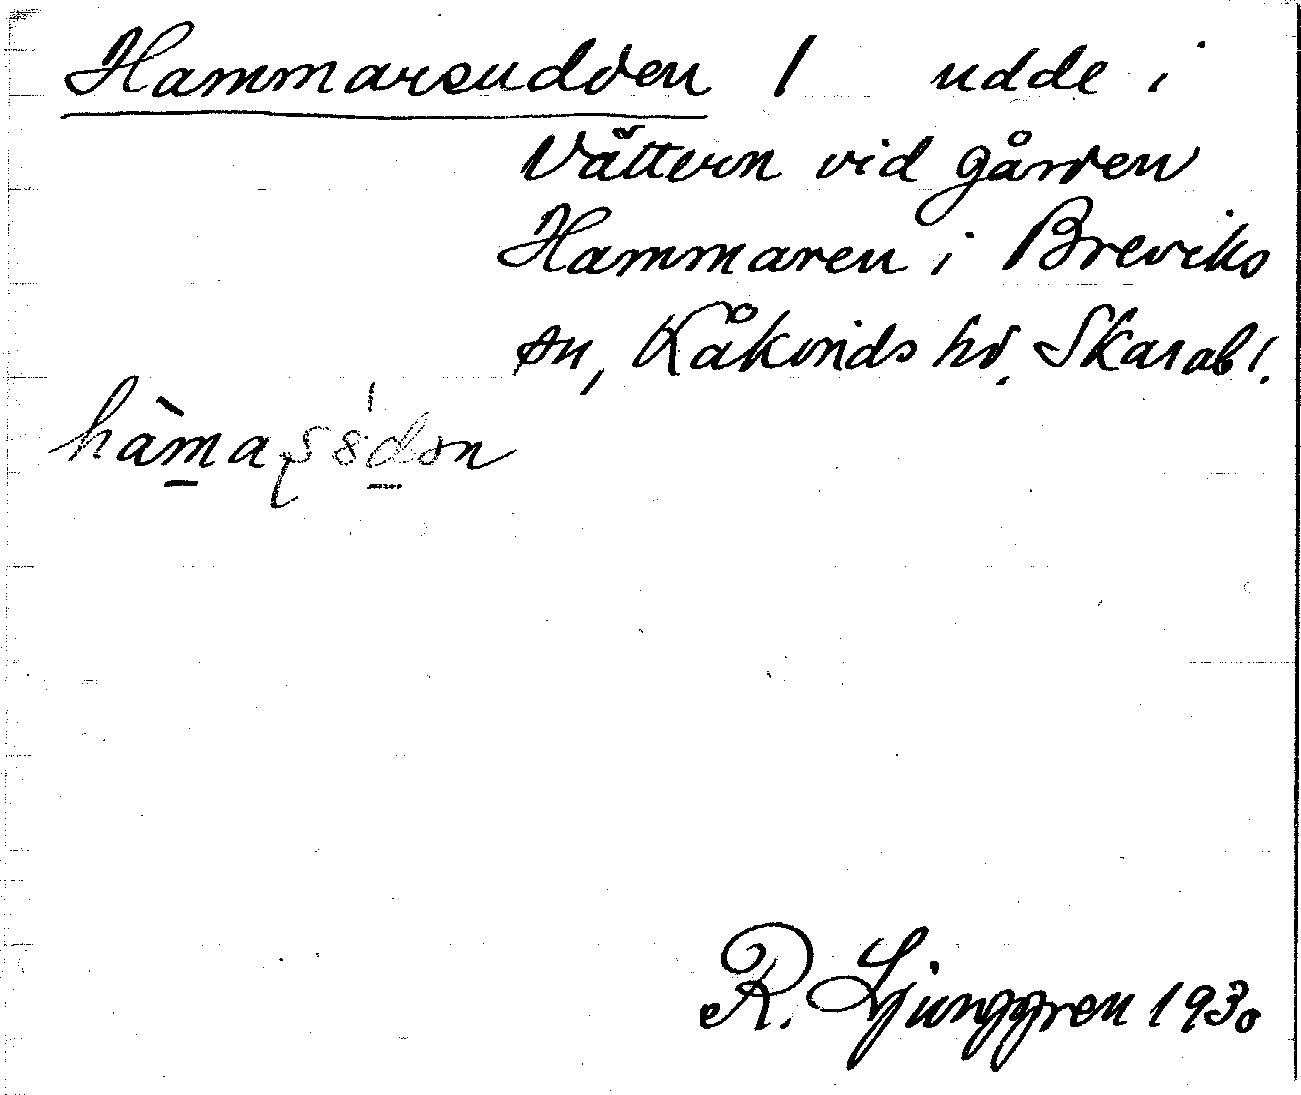 Hammarsudden / udde i
Vättern vid gården
Hammaren i Breviks
sn, Kåkinds hd. Skarab l.
R. Ljunggren 1930